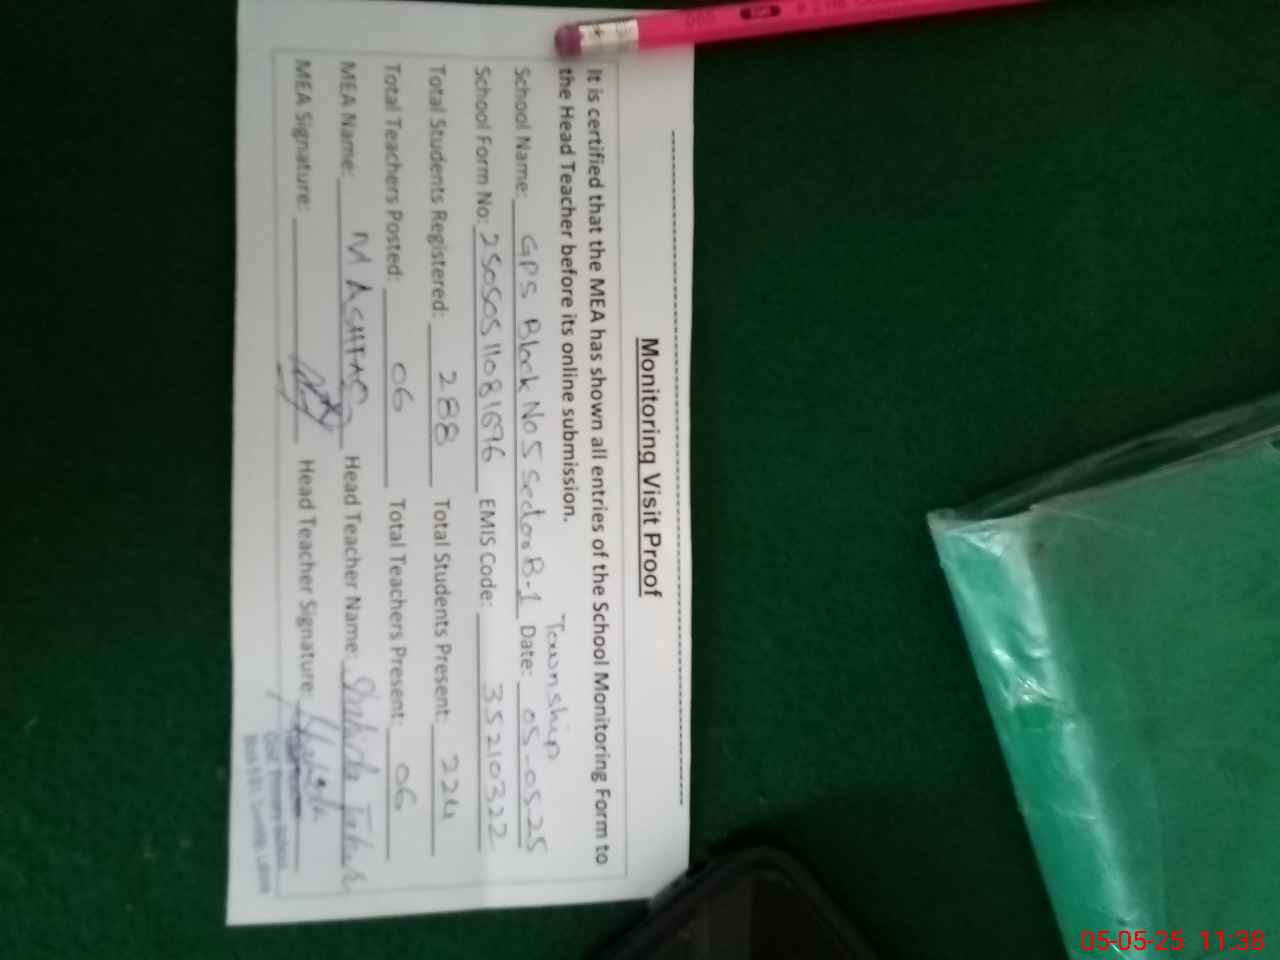 Monitoring Visit Proof
It is certified that the MEA has shown all entries of the School Monitoring Form to
the Head Teacher before its online submission.
Township
School Name: GPS Block No 5 Sector B-1 Date: 05-05-25
School Form No: 25050511081696 EMIS Code: 35210322
Total Students Registered: 288 Total Students Present: 224
Total Teachers Posted: 06 Total Teachers Present: 06
MEA Name: M ASHFAQ Head Teacher Name:
MEA Signature: Head Teacher Signature:
05-05-25 11:38